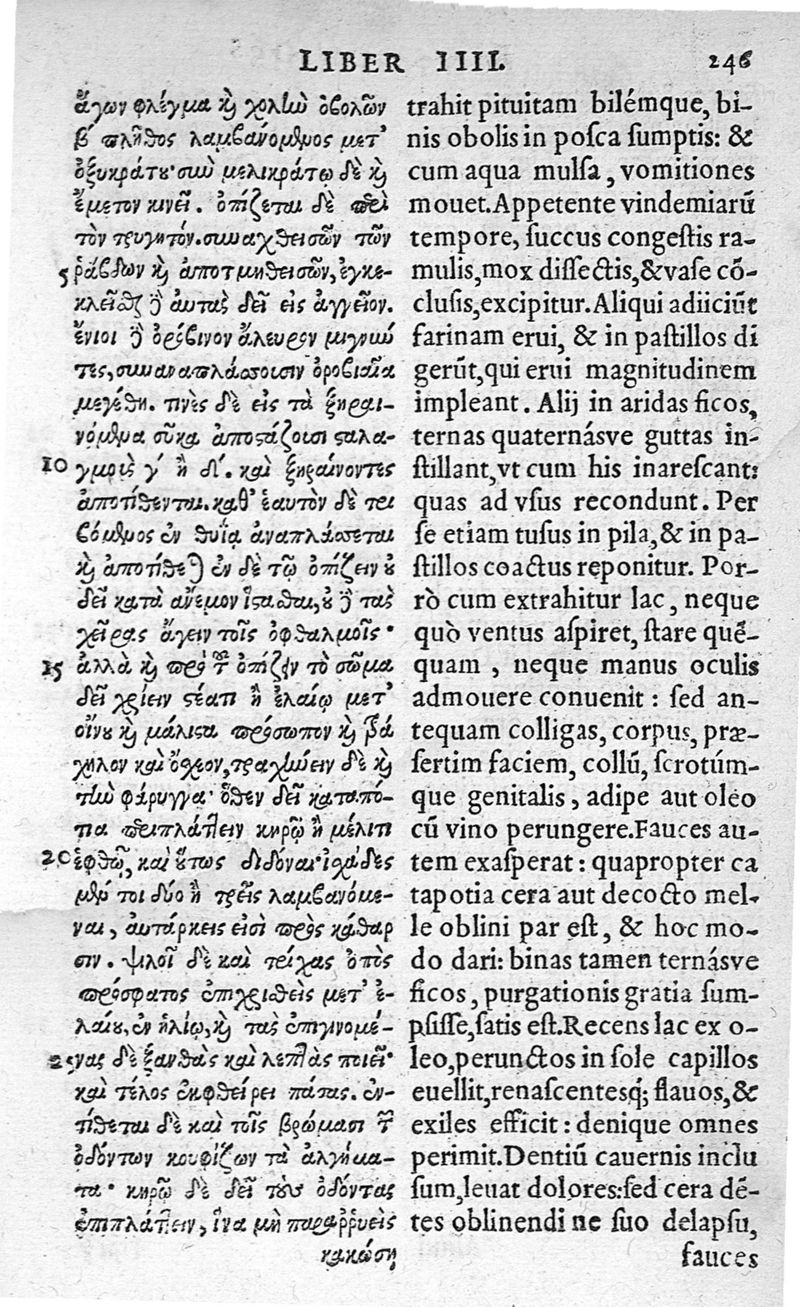 LIBER IIII. 246
ἄγων φλέγμα ϗ χολὴν ὀβολῶν
β΄ πλῆθος λαμβανόμενος μετ'
ὀξυκράτου· σὺν μελικράτῳ δὲ ϗ
ἔμετον κινεῖ. ὀπίζεται δὲ περὶ
τὸν τρυγητόν. συναχθεισῶν τῶν
5 ῥάβδων ϗ ἀποτμηθεισῶν, ἐγκε-
κλεῖσθαι δὲ αὐτὰς δεῖ εἰς ἀγγεῖον.
ἔνιοι δὲ ὀρόβινον ἄλευρον μιγνύν
τες, συναναπλάσσουσιν ὀροβιαῖα
μεγέθη. τινὲς δὲ εἰς τὰ ξηραι-
νόμενα σῦκα ἀποστάζουσι σταλα-
10 γμοὺς γ΄ ἢ δ΄. καὶ ξηραίνοντες
ἀποτίθενται. καθ' ἑαυτὸν δὲ τρι
βόμενος ἐν θυΐᾳ ἀναπλάσσεται
ϗ ἀποτίθεται ἐν δὲ τῷ ὀπίζειν οὐ
δεῖ κατὰ ἄνεμον ἵστασθαι, οὐ δὲ τὰς
χεῖρας ἄγειν τοῖς ὀφθαλμοῖς·
15 ἀλλὰ ϗ πρὸ τοῦ ὀπίζειν τὸ σῶμα
δεῖ χρίειν στέατι ἢ ἐλαίῳ μετ'
οἴνου ϗ μάλιστα πρόσωπον ϗ τρά
χηλον καὶ ὄσχεον, τραχύνειν δὲ ϗ
τὴν φάρυγγα· ὅθεν δεῖ καταπό-
τια περιπλάττειν κηρῷ ἢ μέλιτι
20 ἑφθῷ, καὶ οὕτως διδόναι· ἰσχάδες
μέντοι δύο ἢ τρεῖς λαμβανόμε-
ναι, αὐτάρκεις εἰσὶ πρὸς κάθαρ
σιν. ψιλοῖ δὲ καὶ τρίχας ὀπὸς
πρόσφατος ἐπιχρισθεὶς μετ' ἐ-
λαίου, ἐν ἡλίῳ, ϗ τὰς ἐπιγινομέ-
25 νας δὲ ξανθὰς καὶ λεπτὰς ποιεῖ·
καὶ τέλος ἐκφθείρει πάσας. ἐν-
τίθεται δὲ καὶ τοῖς βρώμασι τῶν
ὀδόντων κουφίζων τὰ ἀλγήμα-
τα· κηρῷ δὲ δεῖ τοὺς ὀδόντας
ἐπιπλάττειν, ἵνα μὴ παραρρυεὶς
κακώσῃ
trahit pituitam bilémque, bi-
nis obolis in posca sumptis: &
cum aqua mulsa, vomitiones
mouet. Appetente vindemiarũ
tempore, succus congestis ra-
mulis, mox dissectis, & vase cõ-
clusis, excipitur. Aliqui adiiciũt
farinam erui, & in pastillos di
gerũt, qui erui magnitudinem
impleant. Alij in aridas ficos,
ternas quaternásve guttas in-
stillant, vt cum his inarescant:
quas ad vsus recondunt. Per
se etiam tusus in pila, & in pa-
stillos coactus reponitur. Por-
rò cum extrahitur lac, neque
quò ventus aspiret, stare quẽ-
quam, neque manus oculis
admouere conuenit: sed an-
tequam colligas, corpus, præ-
sertim faciem, collũ, scrotúm-
que genitalis, adipe aut oleo
cũ vino perungere. Fauces au-
tem exasperat: quapropter ca
tapotia cera aut decocto mel-
le oblini par est, & hoc mo-
do dari: binas tamen ternásve
ficos, purgationis gratia sum-
psisse, satis est. Recens lac ex o-
leo, perunctos in sole capillos
euellit, renascentesq́; flauos, &
exiles efficit: denique omnes
perimit. Dentiũ cauernis inclu
sum, leuat dolores: sed cera dẽ-
tes oblinendi ne suo delapsu,
fauces